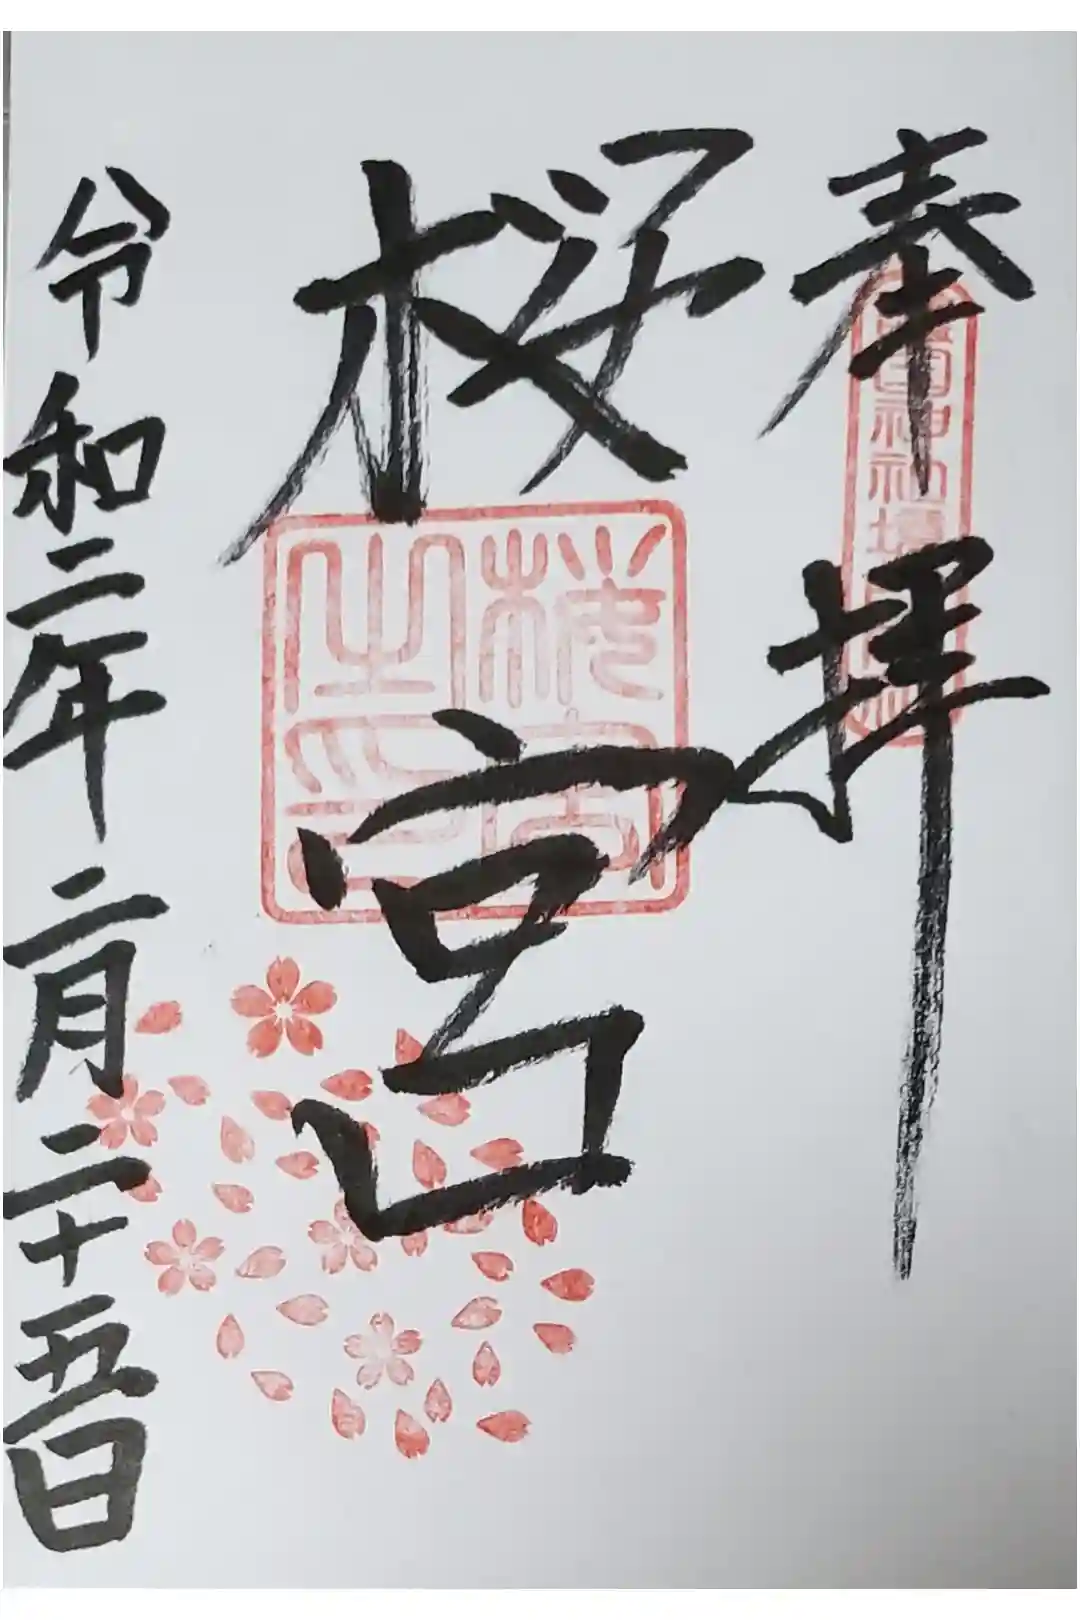 奉拝
神社境
桜宮
桜宮之印
令和二年二月二十五日